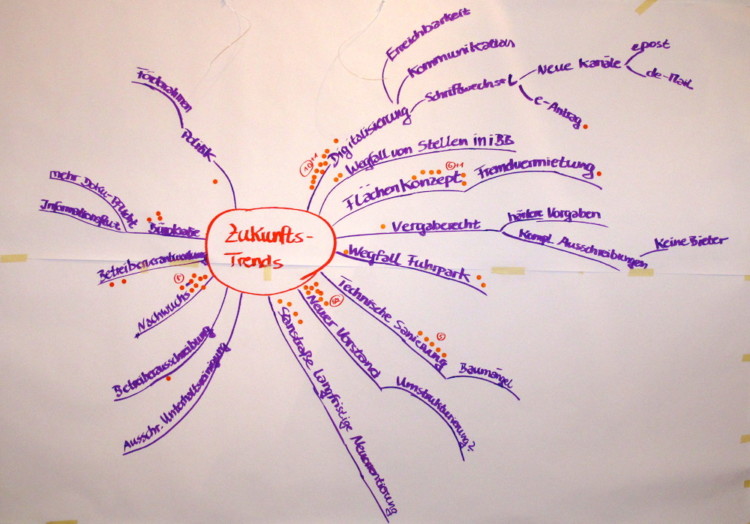 Zukunfts-
Trends
Digitalisierung
Erreichbarkeit
Kommunikation
Schriftwechsel
Neue Kanäle
epost
de-Mail
e-Antrag
Wegfall von Stellen in iBB
Flächen Konzept
Fremdvermietung
Vergaberecht
härtere Vorgaben
Kompl. Ausschreibungen
Keine Bieter
Wegfall Fuhrpark
Technische Sanierung
Baumängel
Neuer Vorstand
Umstrukturierung?
langfristige Neuorientierung
Ausschr. Unterhaltsreinigung
Betreiberausschreibung
Nachwuchs
Betreiberverantwortung
Informationsflut
mehr Doku-Pflicht
Politik